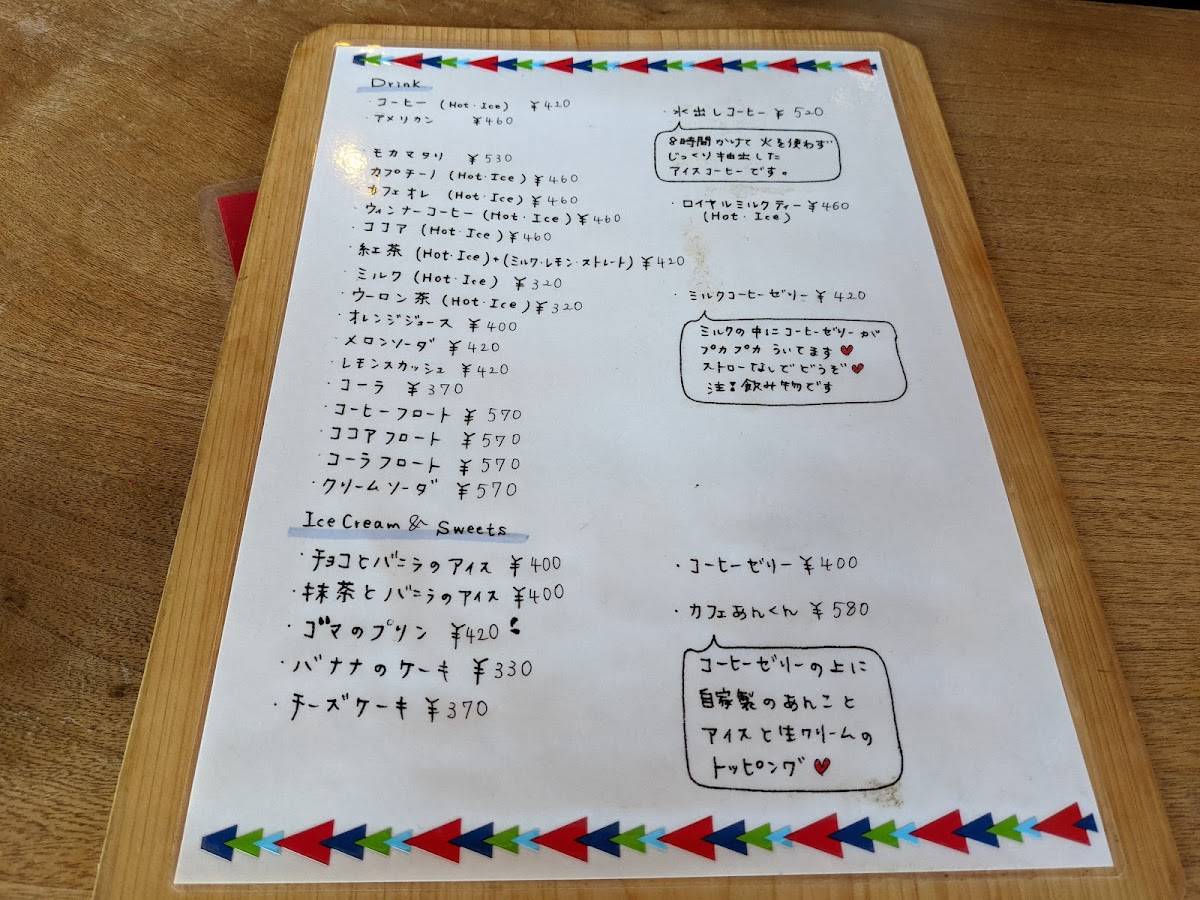 Drink
・コーヒー (Hot・Ice) ¥420
・アメリカン ¥460
・モカマタリ ¥530
・カプチーノ (Hot・Ice) ¥460
・カフェオレ (Hot・Ice) ¥460
・ウィンナーコーヒー (Hot・Ice) ¥460
・ココア (Hot・Ice) ¥460
・紅茶 (Hot・Ice)+(ミルク・レモン・ストレート) ¥420
・ミルク (Hot・Ice) ¥320
・ウーロン茶 (Hot・Ice) ¥320
・オレンジジュース ¥400
・メロンソーダ ¥420
・レモンスカッシュ ¥420
・コーラ ¥370
・コーヒーフロート ¥570
・ココアフロート ¥570
・コーラフロート ¥570
・クリームソーダ ¥570
・水出しコーヒー ¥520
8時間かけて火を使わず
じっくり抽出した
アイスコーヒーです。
・ロイヤルミルクティー ¥460
(Hot・Ice)
・ミルクコーヒーゼリー ¥420
ミルクの中にコーヒーゼリーが
プカプカういてます♥
ストローなしでどうぞ♥
注!飲み物です
Ice Cream & Sweets
・チョコとバニラのアイス ¥400
・抹茶とバニラのアイス ¥400
・ゴマのプリン ¥420
・バナナのケーキ ¥330
・チーズケーキ ¥370
・コーヒーゼリー ¥400
・カフェあんくん ¥580
コーヒーゼリーの上に
自家製のあんこと
アイスと生クリームの
トッピング♥